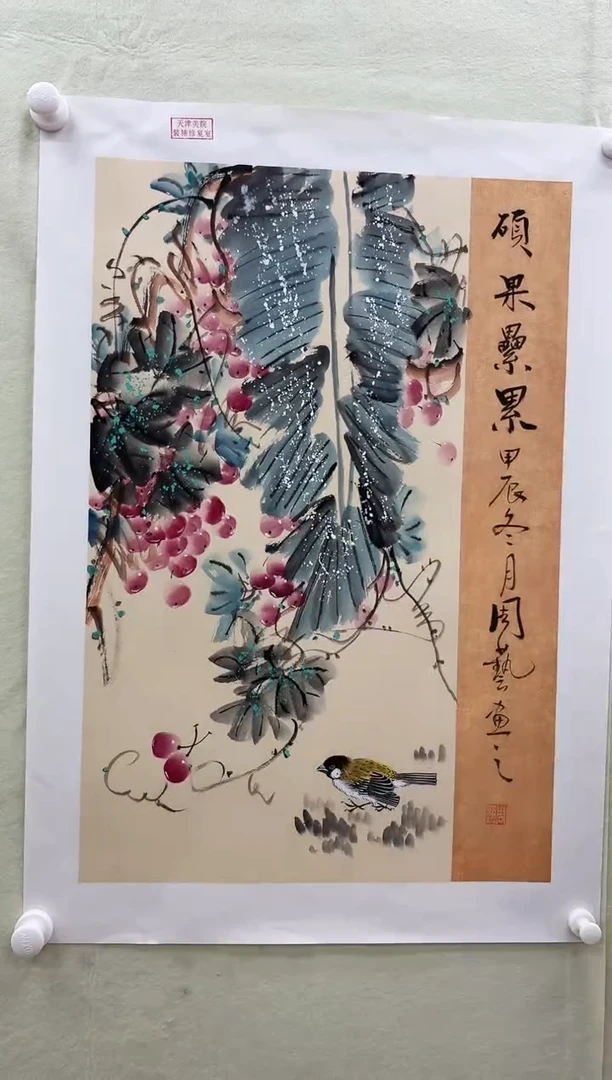 天津美院
装裱修复室
硕果纍累甲辰冬月周艺画之